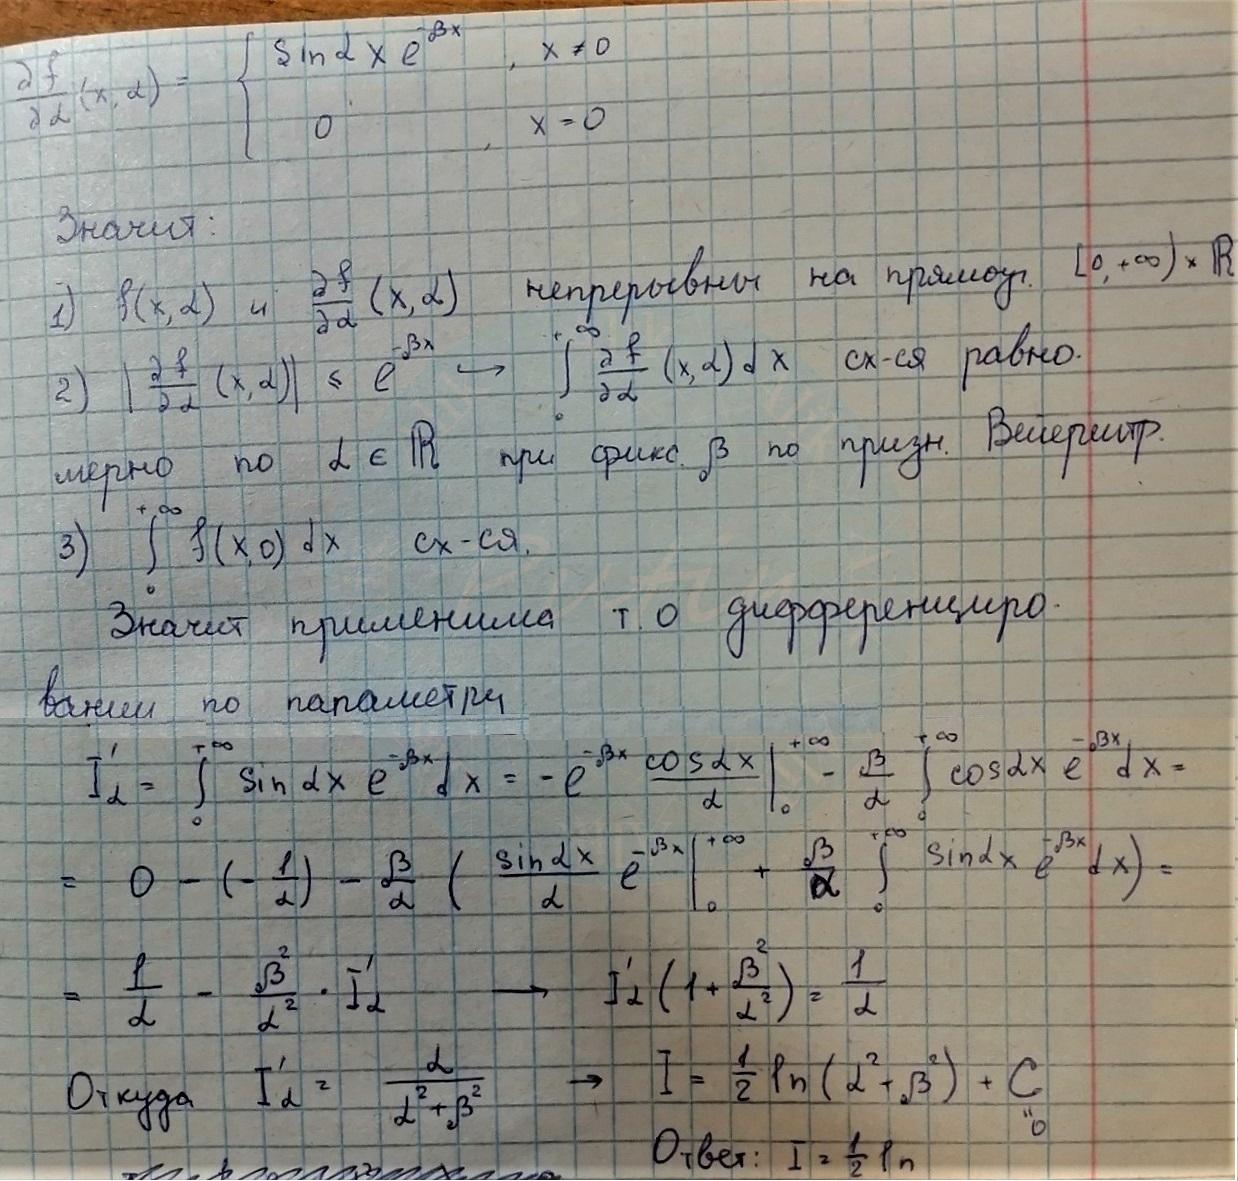 ∂f/∂α (x, α) = { sin αx e^{-βx}, x ≠ 0
0, x = 0
Значит:
1) f(x, α) и ∂f/∂α (x, α) непрерывны на прямоуг. [0, +∞) × ℝ
2) |∂f/∂α (x, α)| ≤ e^{-βx} ↪ ∫_0^{+∞} ∂f/∂α (x, α) dx сх-ся равно-
мерно по α ∈ ℝ при фикс. β по призн. Вейерштр.
3) ∫_0^{+∞} f(x, 0) dx сх-ся.
Значит применима т. о дифференциро-
вании по параметру
I'_α = ∫_0^{+∞} sin αx e^{-βx} dx = -e^{-βx} cos αx/α |_0^{+∞} - β/α ∫_0^{+∞} cos αx e^{-βx} dx =
= 0 - (-1/α) - β/α ( sin αx/α e^{-βx} |_0^{+∞} + β/α ∫_0^{+∞} sin αx e^{-βx} dx) =
= 1/α - β²/α² · I'_α → I'_α (1 + β²/α²) = 1/α
Откуда I'_α = α/(α² + β²) → I = 1/2 ln (α² + β²) + C
"0
Ответ: I = 1/2 ln